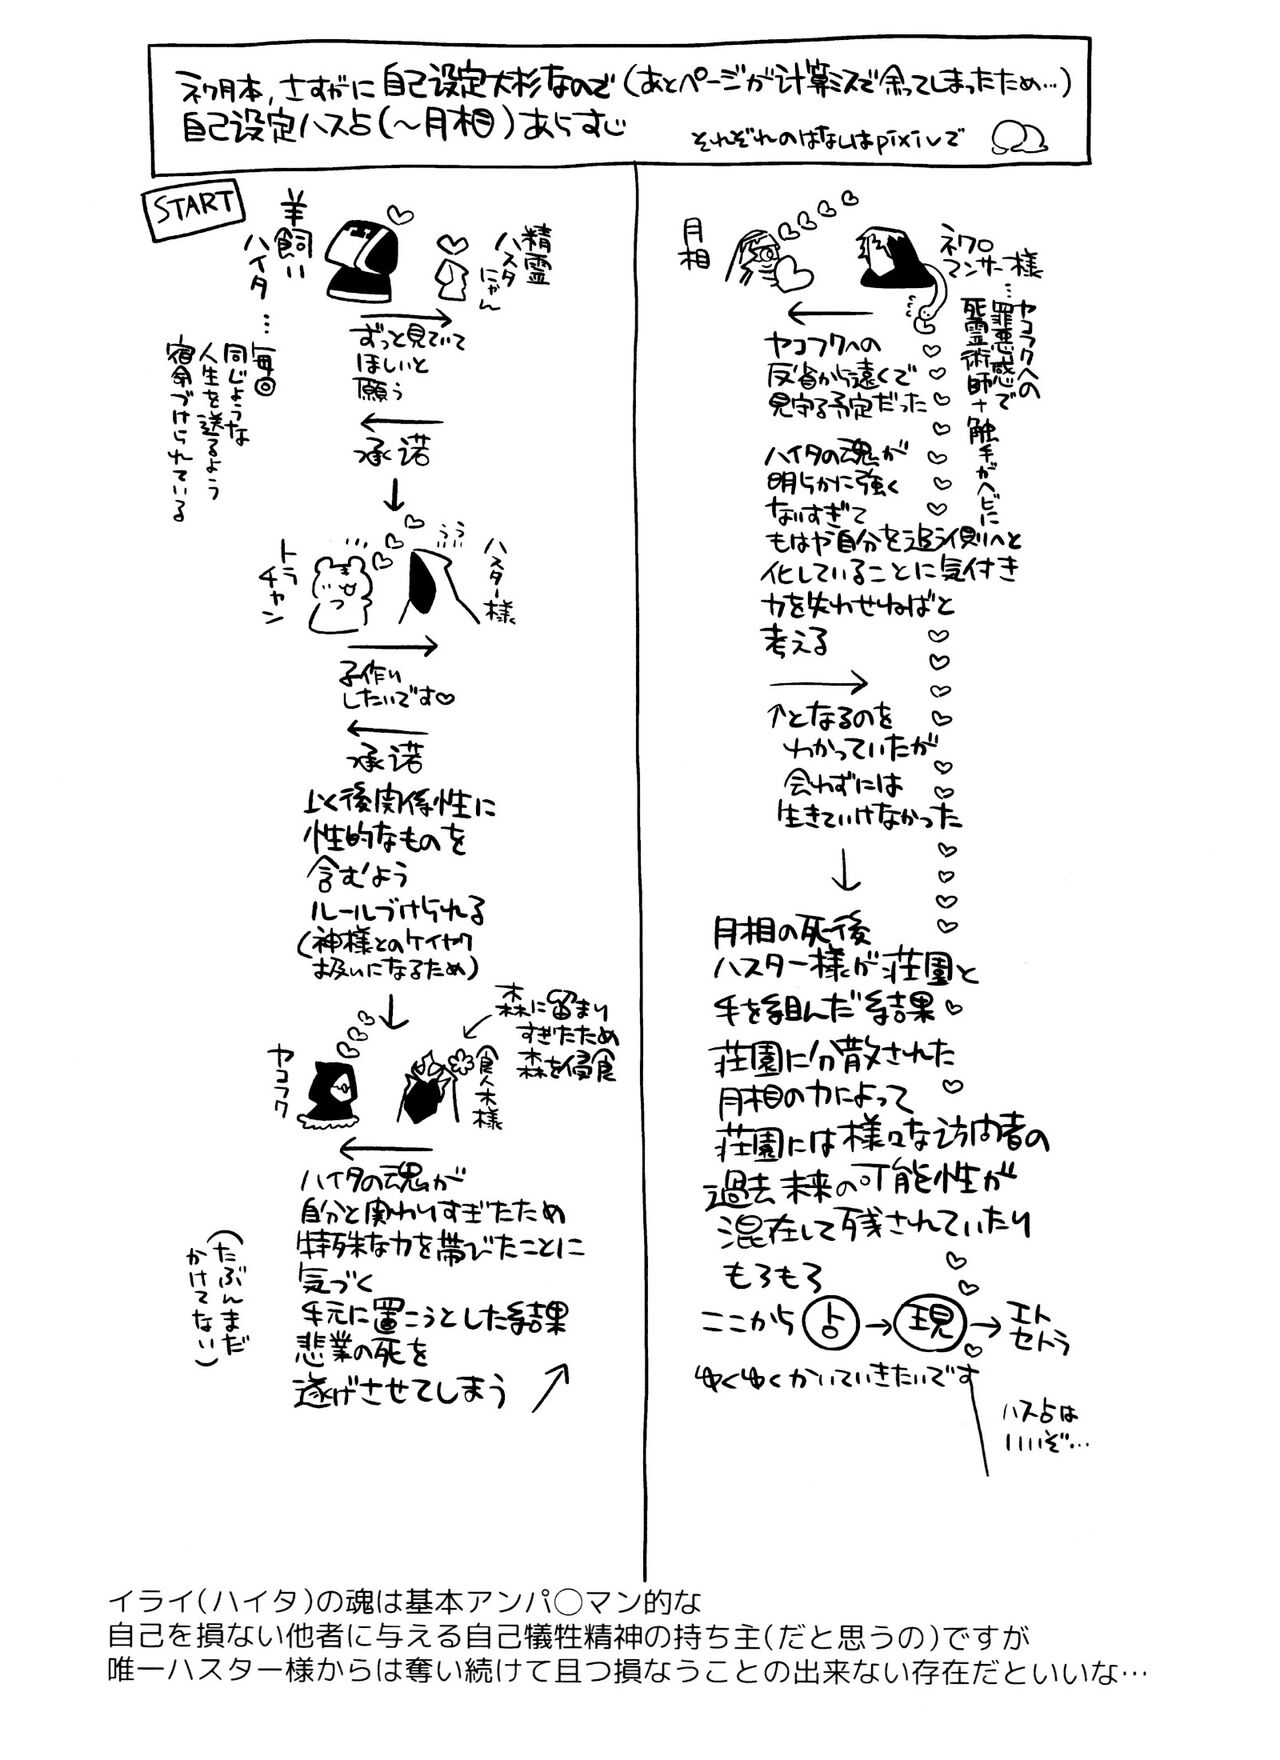 ネク月本,さすがに自己設定大杉なので(あとページが計算ミスで余ってしまったため…)
自己設定ハス占(～月相)あらすじ
それぞれのはなしはpixivで
START
羊飼い
ハイタ…
毎回
同じような
人生を送るよう
宿命づけられている
精霊
ハスタ
にゃん
ずっと見ていて
ほしいと
願う
承諾
トラ
チャン
ハスター様
子作り
したいです♡
承諾
以後関係性に
性的なものを
含むよう
ルールづけられる
(神様とのケイヤク
扱いになるため)
森に留まり
すぎたため
森を侵食
ヤコラク
食人木様
ハイタの魂が
自分と関わりすぎたため
特殊な力を帯びたことに
気づく
手元に置こうとした結果
悲業の死を
遂げさせてしまう
(たぶんまだ
かけてない)
月相
ネクロ
マンサー様
…ヤコラクへの
罪悪感で
死霊術師+触手がヘビに
ヤコラクへの
反省から遠くで
見守る予定だった
ハイタの魂が
明らかに強く
なりすぎて
もはや自分を追う側へと
化していることに気付き
力を失わせねばと
考える
↑となるのを
わかっていたが
会わずには
生きていけなかった
月相の死後
ハスター様が荘園と
手を組んだ結果
荘園に分散された
月相の力によって
荘園には様々な訪問者の
過去未来の可能性が
混在して残されていたり
もろもろ
ここから占→現→エト
セトラ
ゆくゆくかいていきたいです
ハス占は
いいぞ…
イライ(ハイタ)の魂は基本アンパ◯マン的な
自己を損ない他者に与える自己犠牲精神の持ち主(だと思うの)ですが
唯一ハスター様からは奪い続けて且つ損なうことの出来ない存在だといいな…